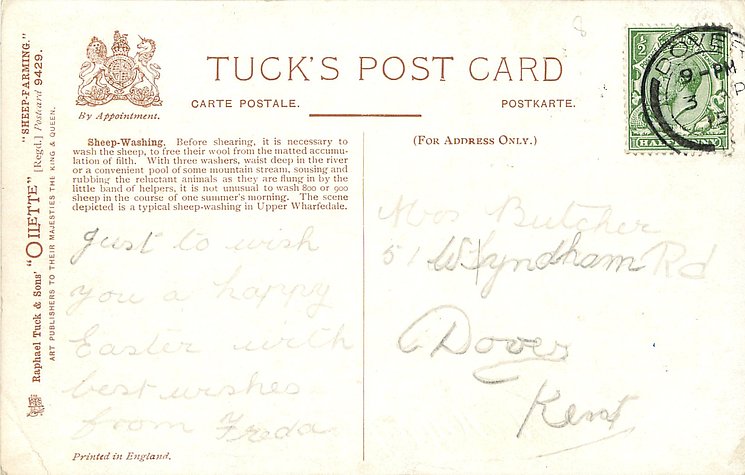 TUCK'S POST CARD
By Appointment.
CARTE POSTALE. POSTKARTE.
"SHEEP-FARMING."
[Regd.] Postcard 9429.
Raphael Tuck & Sons' "OILETTE"
ART PUBLISHERS TO THEIR MAJESTIES THE KING & QUEEN.
Sheep-Washing. Before shearing, it is necessary to
wash the sheep, to free their wool from the matted accumu-
lation of filth. With three washers, waist deep in the river
or a convenient pool of some mountain stream, sousing and
rubbing the reluctant animals as they are flung in by the
little band of helpers, it is not unusual to wash 800 or 900
sheep in the course of one summer's morning. The scene
depicted is a typical sheep-washing in Upper Wharfedale.
Just to wish
you a happy
Easter with
best wishes
from Freda
Printed in England.
(FOR ADDRESS ONLY.)
Mrs Butcher
51 Wyndham Rd
Dover
Kent
8
DOVER
9 - PM
3
HALFPENNY
1/2